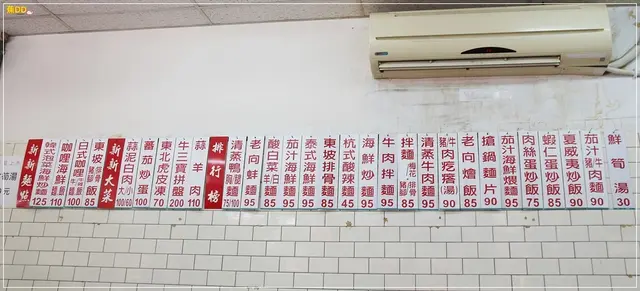 蕉DD
新新麵點
韓式泡菜海鮮炒麵 125
咖哩海鮮燴飯 110
日式咖哩飯 100
東坡豬腳飯 85
新新大菜
蒜泥白肉 大小 100/60
蕃茄炒蛋 100
東北虎皮凍 70
牛三寶拼盤 200
蒜羊肉 110
排行榜
清蒸鴨麵 75/100
老向蚌麵 95
酸白菜拌麵 85
茄汁海鮮麵 95
泰式海鮮麵 95
東坡排骨麵 85
杭式酸辣麵 95
海鮮炒麵 95
牛肉拌麵 95
拌麵 梅花 排骨 豬腳 85
清蒸牛肉麵 95
牛肉 豬肉 疙瘩(湯) 90
老向燴飯 85
搶鍋麵片 90
茄汁海鮮麵 95
肉絲蛋炒飯 75
蝦仁蛋炒飯 85
夏威夷炒飯 90
茄汁牛肉 豬肉 麵 90
鮮筍湯 30
筍湯
元